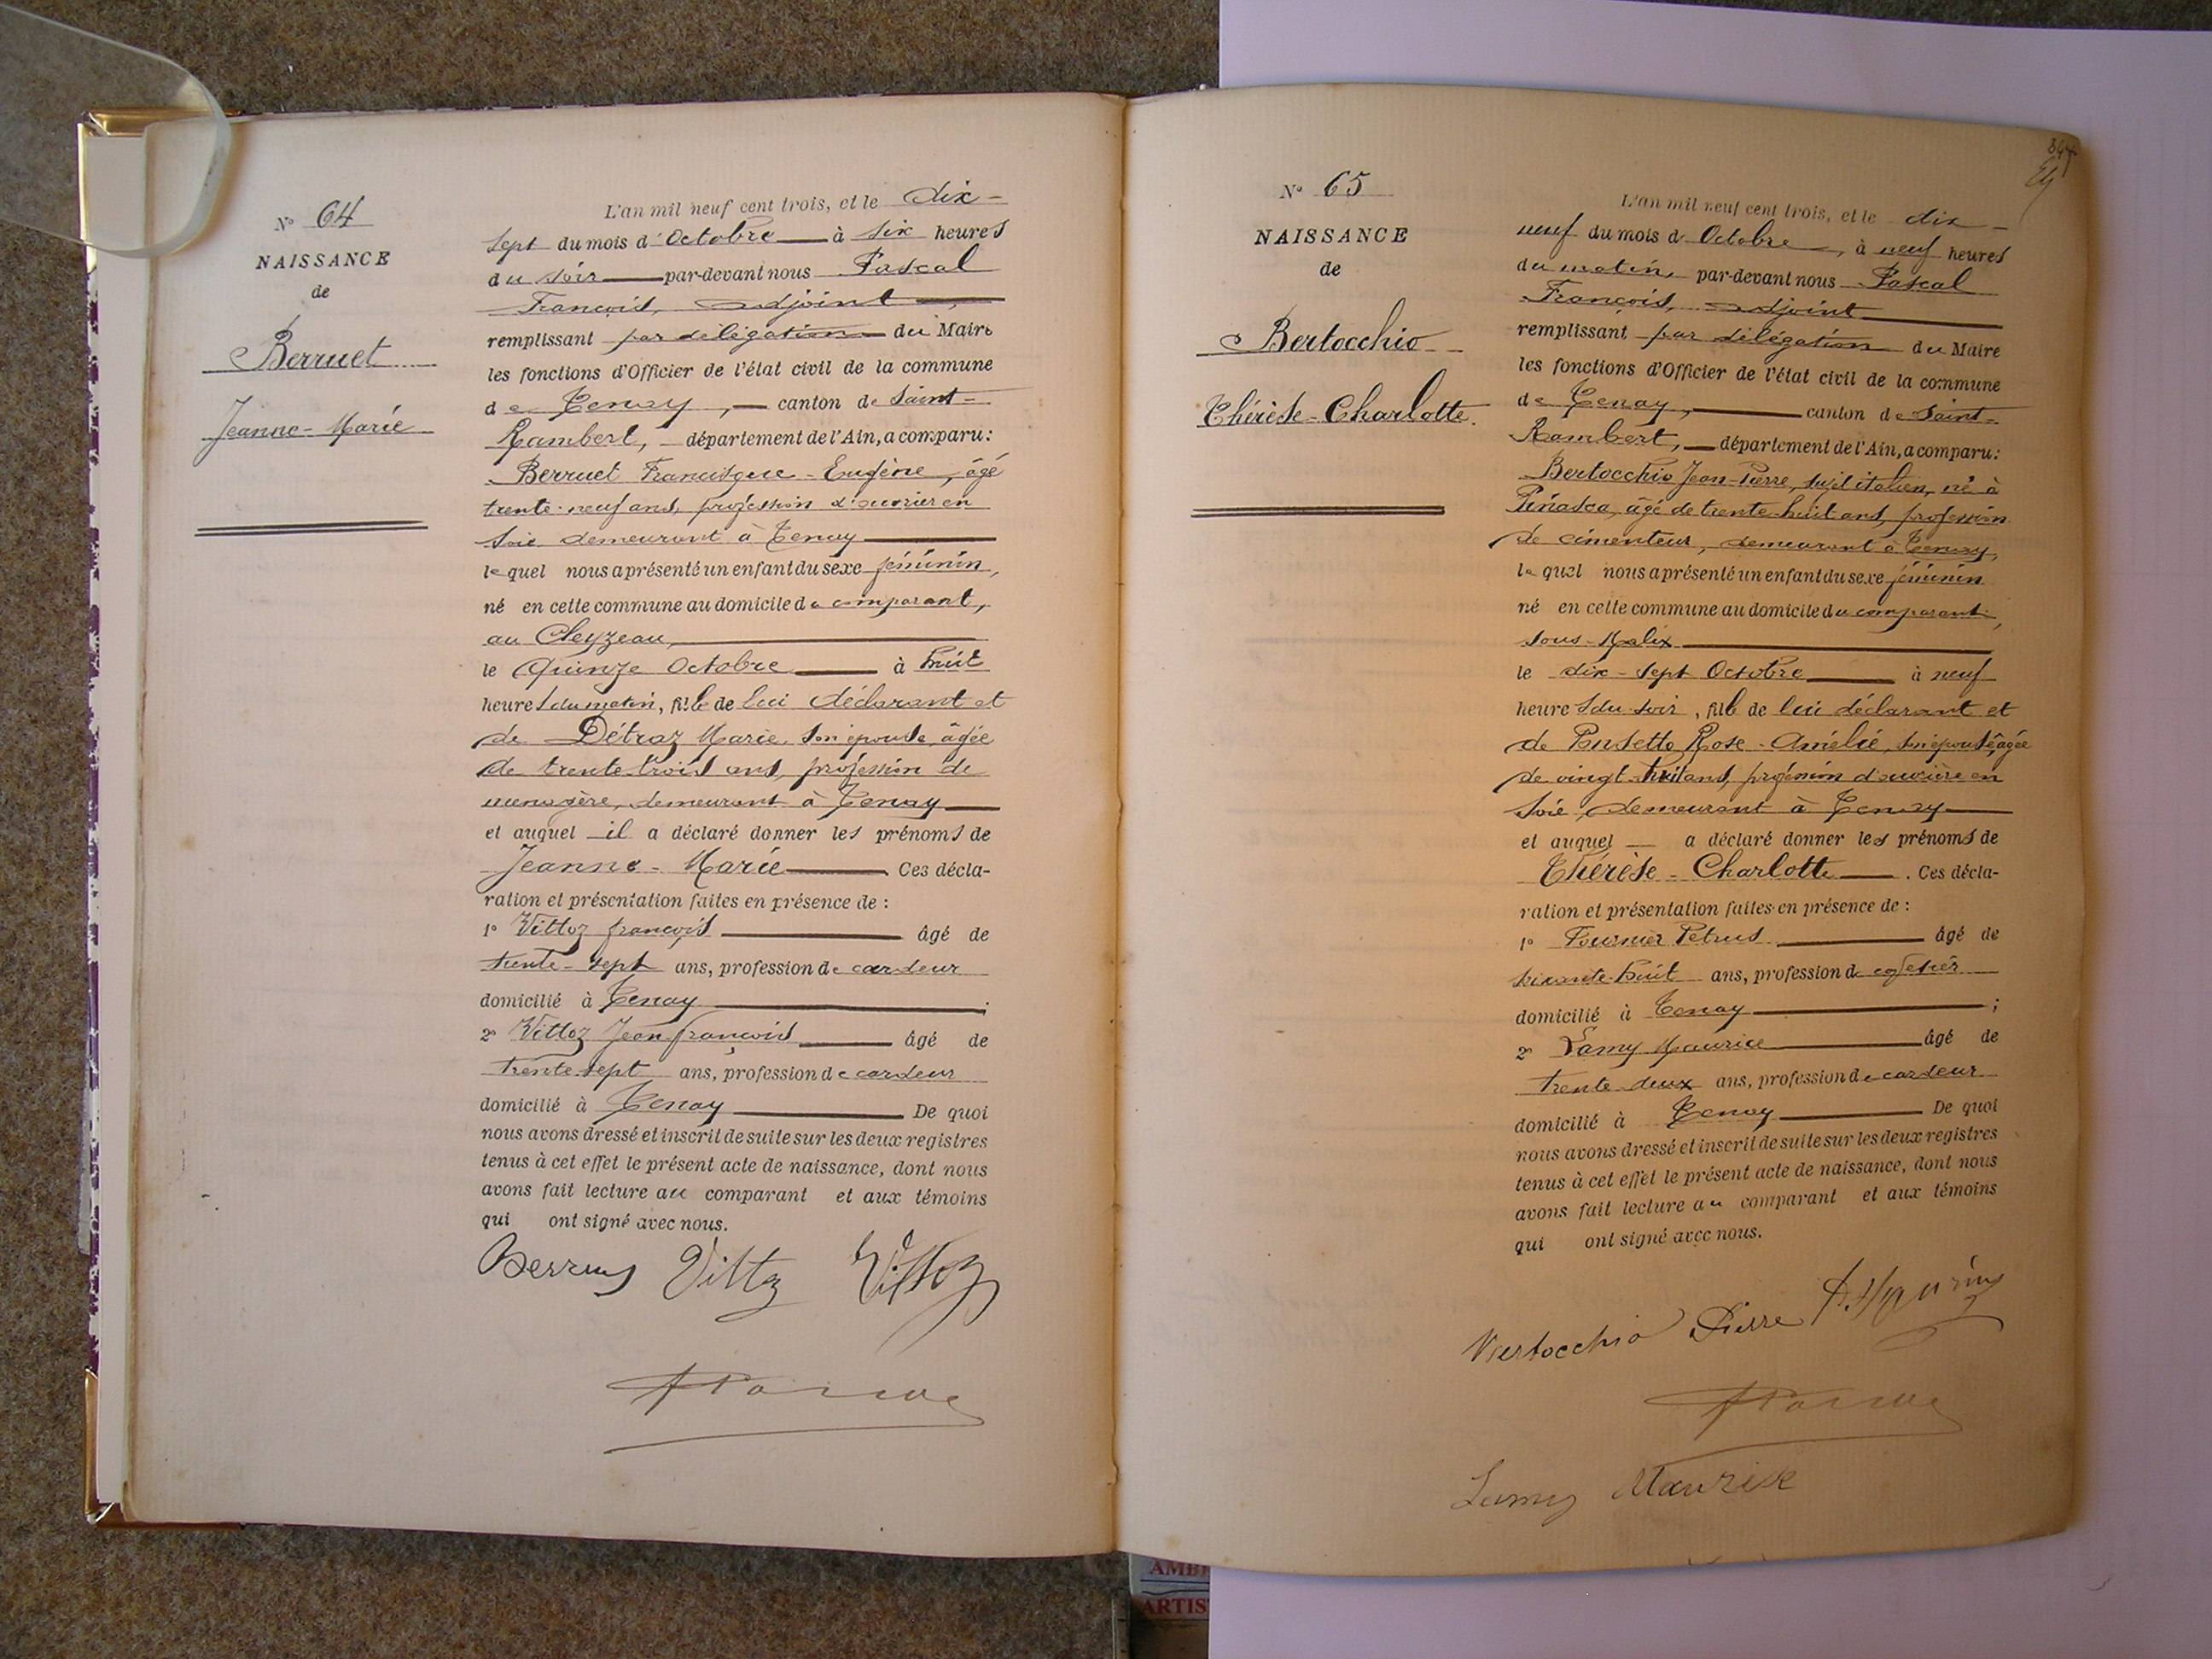 N° 64
NAISSANCE
de
Berruet
Jeanne-Marie
L'an mil neuf cent trois, et le dix-
sept du mois d'Octobre à six heures
du soir par-devant nous Pascal
François, adjoint
remplissant par délégation du Maire
les fonctions d'Officier de l'état civil de la commune
de Tenay, canton de Saint-
Rambert, département de l'Ain, a comparu:
Berruet Francisque-Eugène, âgé
trente-neuf ans, profession d'ouvrier en
soie demeurant à Tenay
lequel nous a présenté un enfant du sexe féminin,
né en cette commune au domicile du comparant,
au Cleyzeau,
le quinze Octobre à huit
heures du matin, fille de lui déclarant et
de Détraz Marie, son épouse, âgée
de trente-trois ans, profession de
menagère, demeurant à Tenay
et auquel il a déclaré donner les prénoms de
Jeanne-Marie Ces décla-
ration et présentation faites en présence de :
1° Vittoz françois âgé de
trente-sept ans, profession de cardeur
domicilié à Tenay ;
2° Vittoz Jean françois âgé de
trente-sept ans, profession de cardeur
domicilié à Tenay De quoi
nous avons dressé et inscrit de suite sur les deux registres
tenus à cet effet le présent acte de naissance, dont nous
avons fait lecture au comparant et aux témoins
qui ont signé avec nous.
Vittoz Vittoz
N° 65
NAISSANCE
de
Bertocchio
Thérèse-Charlotte.
L'an mil neuf cent trois, et le dix-
neuf du mois d Octobre, à neuf heures
du matin, par-devant nous Pascal
François, adjoint
remplissant par délégation du Maire
les fonctions d'Officier de l'état civil de la commune
de Tenay, canton de Saint-
Rambert, département de l'Ain, a comparu:
Bertocchio Jean-Pierre, sujet italien, né à
Pinasca, âgé de trente-huit ans, profession
de cimenteur, demeurant à Tenay,
lequel nous a présenté un enfant du sexe féminin
né en cette commune au domicile du comparant,
sous-Malix
le dix-sept Octobre à neuf
heures du soir, fille de lui déclarant et
de Rose-Amélie, son épouse, âgée
de vingt-huit ans, profession d'ouvrière en
soie, demeurant à Tenay
et auquel a déclaré donner les prénoms de
Thérèse-Charlotte. Ces décla-
ration et présentation faites en présence de :
1° Fournier Petrus âgé de
soixante-huit ans, profession de cafetier
domicilié à Tenay ;
2° Lamy Maurice âgé de
trente-deux ans, profession de cardeur
domicilié à Tenay De quoi
nous avons dressé et inscrit de suite sur les deux registres
tenus à cet effet le présent acte de naissance, dont nous
avons fait lecture au comparant et aux témoins
qui ont signé avec nous.
Bertocchio Pierre
Lamy Maurice
ARTIS